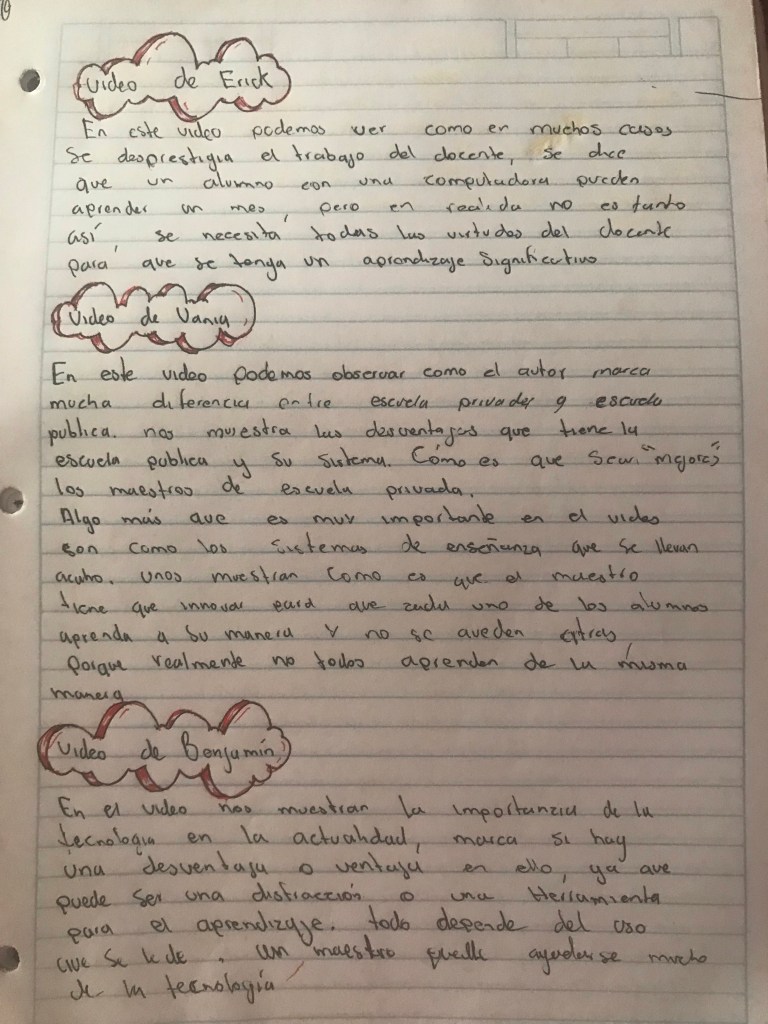 Video de Erick
En este video podemos ver como en muchos casos
se desprestigia el trabajo del docente, se dice
que un alumno con una computadora pueden
aprender un mes, pero en realida no es tanto
así, se necesita todas las virtudes del docente
para que se tenga un aprendizaje significativo
Video de Vania
En este video podemos observar como el autor marca
mucha diferencia entre escuela privada y escuela
publica. nos muestra las desventajas que tiene la
escuela publica y su sistema. Cómo es que sean "mejores"
los maestros de escuela privada.
Algo más que es muy importante en el video
son como los sistemas de enseñanza que se llevan
acabo. unos muestran como es que el maestro
tiene que innovar para que cada uno de los alumnos
aprenda a su manera y no se queden atras
porque realmente no todos aprenden de la misma
manera
Video de Benjamín
En el video nos muestran la importanzia de la
tecnologia en la actualidad, marca si hay
una desventaja o ventaja en ello, ya que
puede ser una distracción o una Herramienta
para el aprendizaje. todo depende del uso
que se le de. un maestro puede ayudarse mucho
de la tecnología